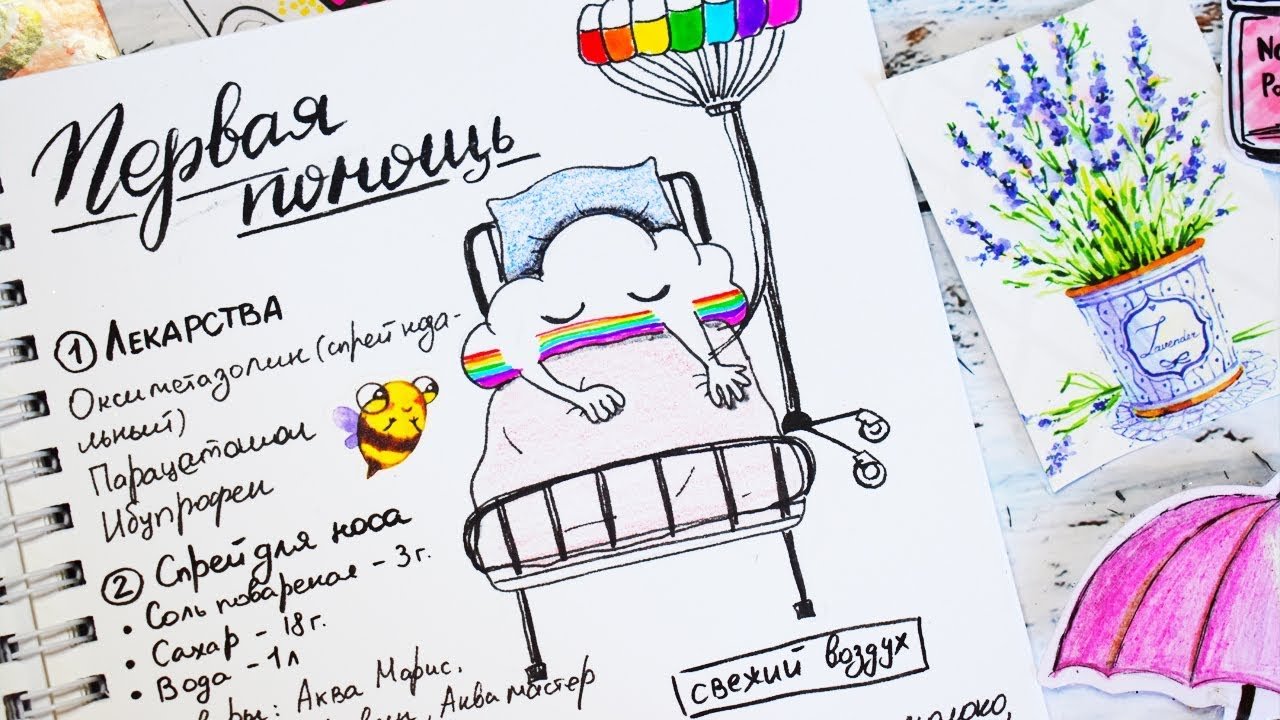 Первая
помощь
① Лекарства
Оксиметазолин (спрей нда-
льный)
Парацетамол
Ибупрофен
② Спрей для носа
• Соль поваренная - 3 г.
• Сахар - 18 г.
• Вода - 1 л
Аква Марис.
Аквамастер
свежий воздух
молоко,
Lavender
No